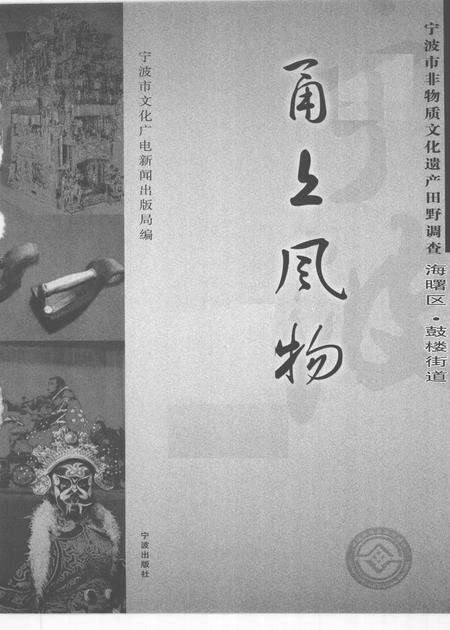 宁波市非物质文化遗产田野调查
海曙区·鼓楼街道
甬上风物
宁波市文化广电新闻出版局编
宁波出版社